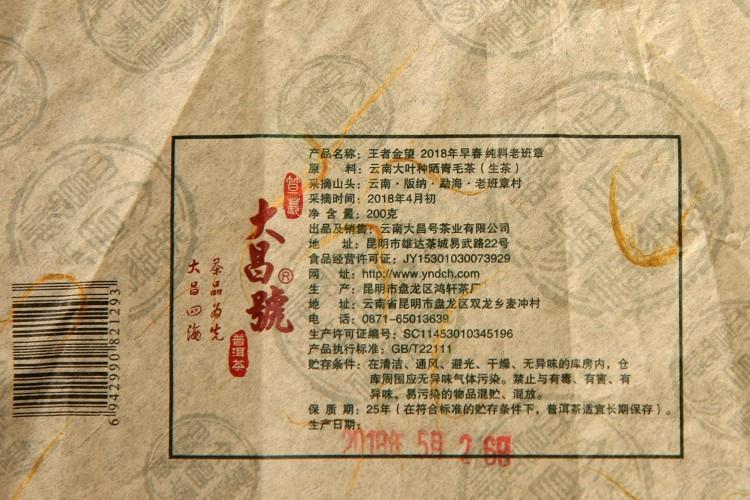 产品名称：王者金望 2018年早春 纯料老班章
原　　料：云南大叶种晒青毛茶（生茶）
采摘山头：云南·版纳·勐海·老班章村
采摘时间：2018年4月初
净 含 量：200克
出品及销售：云南大昌号茶业有限公司
地　　址：昆明市雄达茶城易武路22号
食品经营许可证：JY15301030073929
网　　址：http://www.yndch.com
生　　产：昆明市盘龙区鸿轩茶厂
地　　址：云南省昆明市盘龙区双龙乡麦冲村
电　　话：0871-65013639
生产许可证编号：SC11453010345196
产品执行标准：GB/T22111
贮存条件：在清洁、通风、避光、干燥、无异味的库房内，仓
库周围应无异味气体污染。禁止与有毒、有害、有
异味、易污染的物品混贮、混放。
保 质 期：25年（在符合标准的贮存条件下，普洱茶适宜长期保存）。
生产日期：
2018年 5月 2 6日
大昌號®
普洱茶
茶品為先
大昌四海
6942990821293